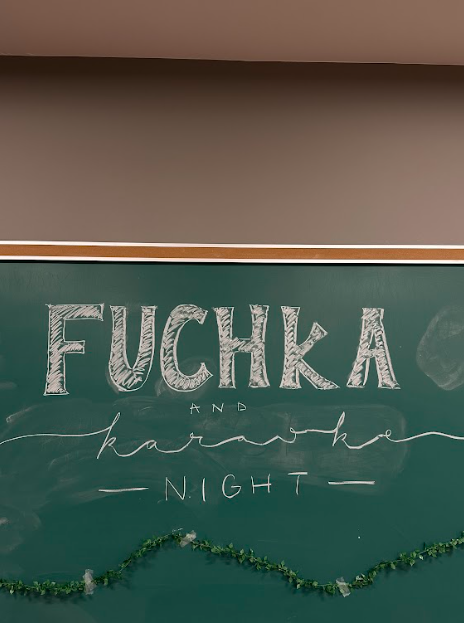 FUCHKA
AND
karaoke
NIGHT